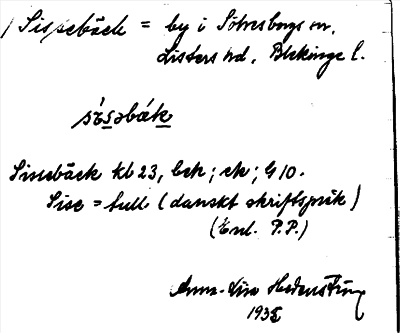 Sissebäck = by i Sölvesborgs sn,
Listers hd, Blekinge l.
sísəbǽk
Sissebäck kb 23, bek; ek; G 10.
Sise = tull (danskt skriftspråk)
(Enl. P.P.)
Anna-Lisa
193